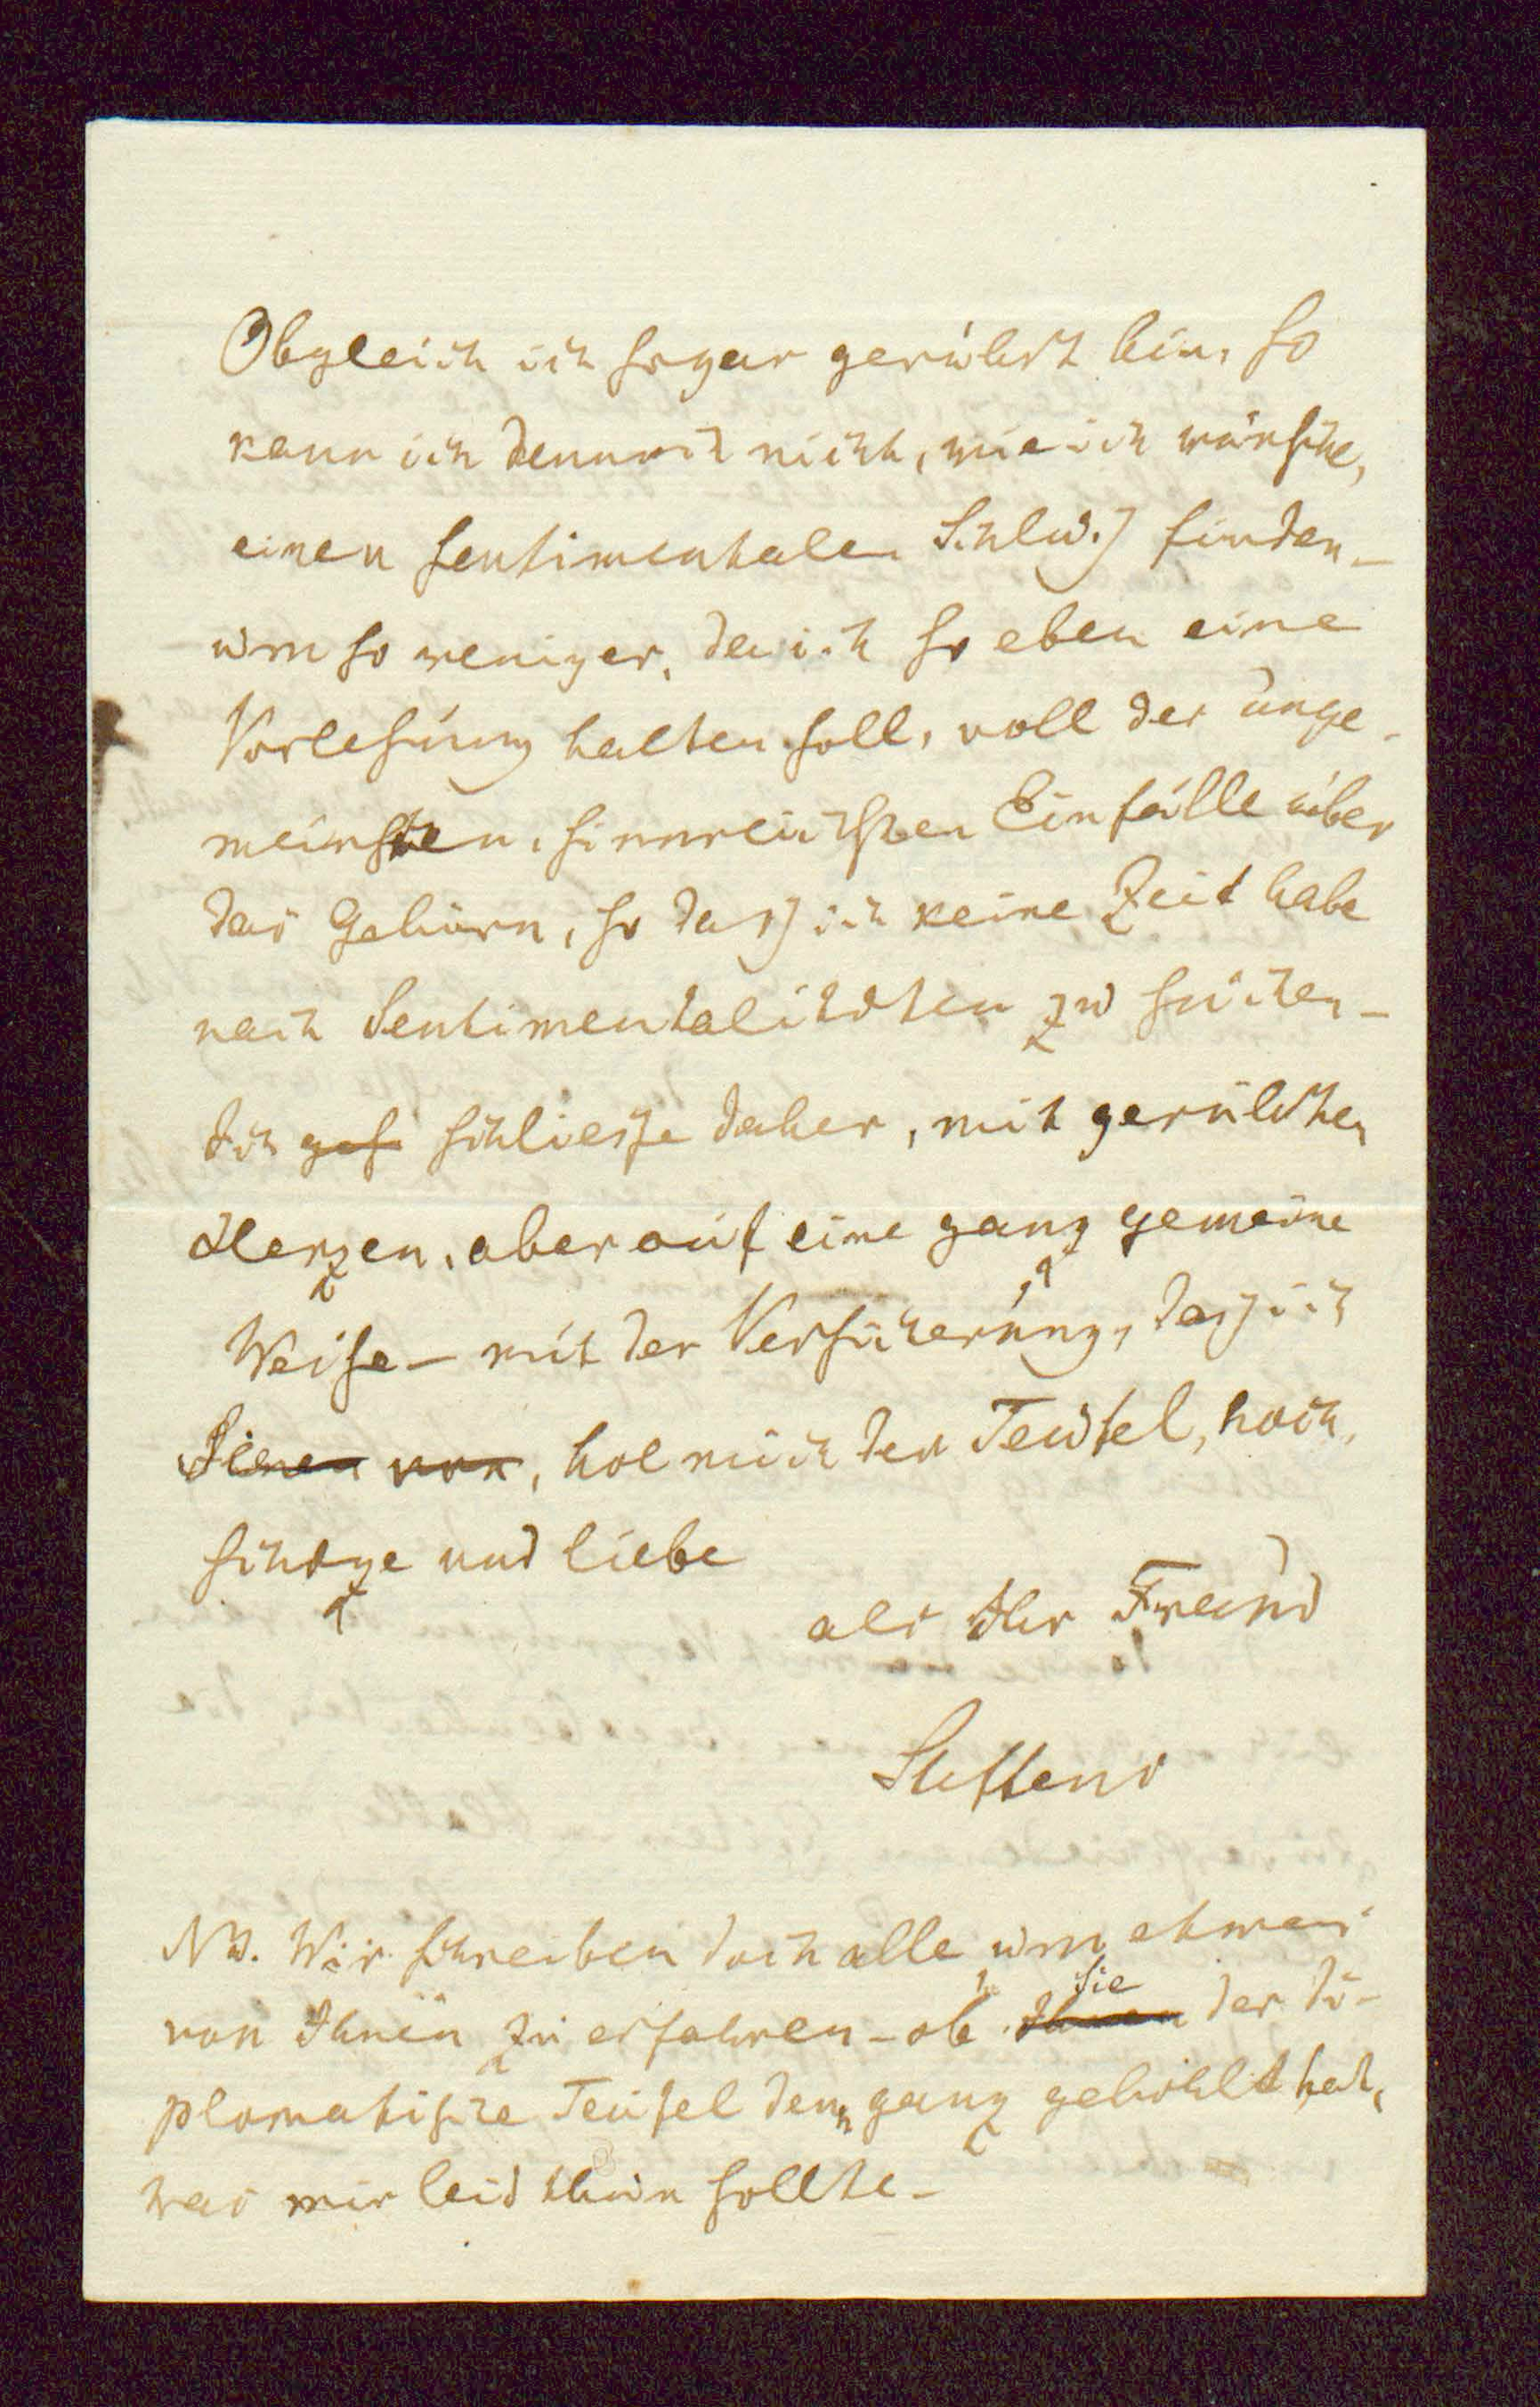 Obgleich ich sogar gerührt bin, so
kann ich dennoch nicht, wie ich wünsche,
einen sentimentalen Schluß finden –
um so weniger, da ich so eben eine
Vorlesung halten soll, voll der unge-
meinsten, sinnreichsten Einfälle über
das Gehirn, so daß ich keine Zeit habe
nach Sentimentalitäten zu suchen –
Ich schließe daher, mit gerührten
Herzen, aber auf eine ganz gemeine
Weise – mit der Versicherung, daß ich
Sie, hol mich der Teufel, hoch
schäze und liebe
als Ihr Freund
Steffens
NB. Wir schreiben doch alle um etwas
von Ihnen zu erfahren – ob Sie der di-
plomatische Teufel denn ganz gehohlt hat,
was mir leid thun sollte –